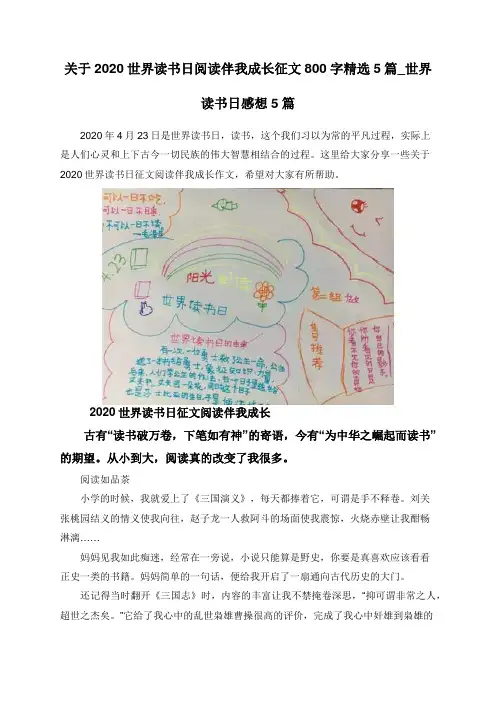 关于2020世界读书日阅读伴我成长征文800字精选5篇_世界
读书日感想5篇
2020年4月23日是世界读书日，读书，这个我们习以为常的平凡过程，实际上
是人们心灵和上下古今一切民族的伟大智慧相结合的过程。这里给大家分享一些关于
2020世界读书日征文阅读伴我成长作文，希望对大家有所帮助。
可以一日不吃，
可以一日不睡，
不可以一日不读。
4.23
阳光阅读
世界读书日
第二组做
好书推荐
世界读书日的由来
2020世界读书日征文阅读伴我成长
古有“读书破万卷，下笔如有神”的寄语，今有“为中华之崛起而读书”
的期望。从小到大，阅读真的改变了我很多。
阅读如品茶
小学的时候，我就爱上了《三国演义》，每天都捧着它，可谓是手不释卷。刘关
张桃园结义的情义使我向往，赵子龙一人救阿斗的场面使我震惊，火烧赤壁让我酣畅
淋漓……
妈妈见我如此痴迷，经常在一旁说，小说只能算是野史，你要是真喜欢应该看看
正史一类的书籍。妈妈简单的一句话，便给我开启了一扇通向古代历史的大门。
还记得当时翻开《三国志》时，内容的丰富让我不禁掩卷深思，“抑可谓非常之人，
超世之杰矣。”它给了我心中的乱世枭雄曹操很高的评价，完成了我心中奸雄到枭雄的